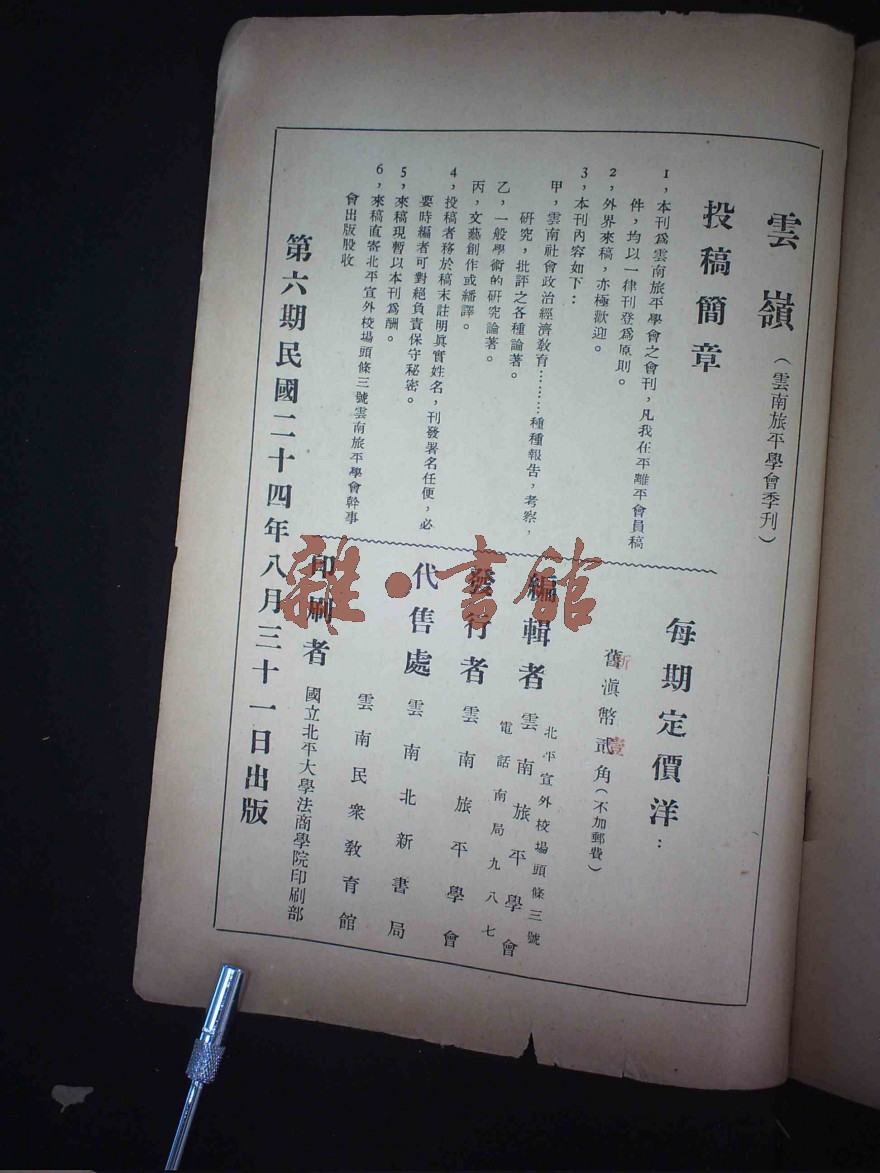 雲嶺（雲南旅平學會季刊）
投稿簡章
1，本刊爲雲南旅平學會之會刊，凡我在平離平會員稿
件，均以一律刊登爲原則。
2，外界來稿，亦極歡迎。
3，本刊內容如下：
甲，雲南社會政治經濟教育………種種報告，考察，
研究，批評之各種論著。
乙，一般學術的研究論著。
丙，文藝創作或繙譯。
4，投稿者移於稿末註明眞實姓名，刊發署名任便，必
要時編者可對絕負責保守秘密。
5，來稿現暫以本刊爲酬。
6，來稿直寄北平宣外校場頭條三號雲南旅平學會幹事
會出版股收
每期定價洋：
舊滇幣貳角（不加郵費）
新
壹
北平宣外校場頭條三號
編輯者 雲南旅平學會
電話南局九八七
發行者 雲南旅平學會
代售處 雲南北新書局
雲南民衆教育館
印刷者 國立北平大學法商學院印刷部
第六期民國二十四年八月三十一日出版
雜·書館